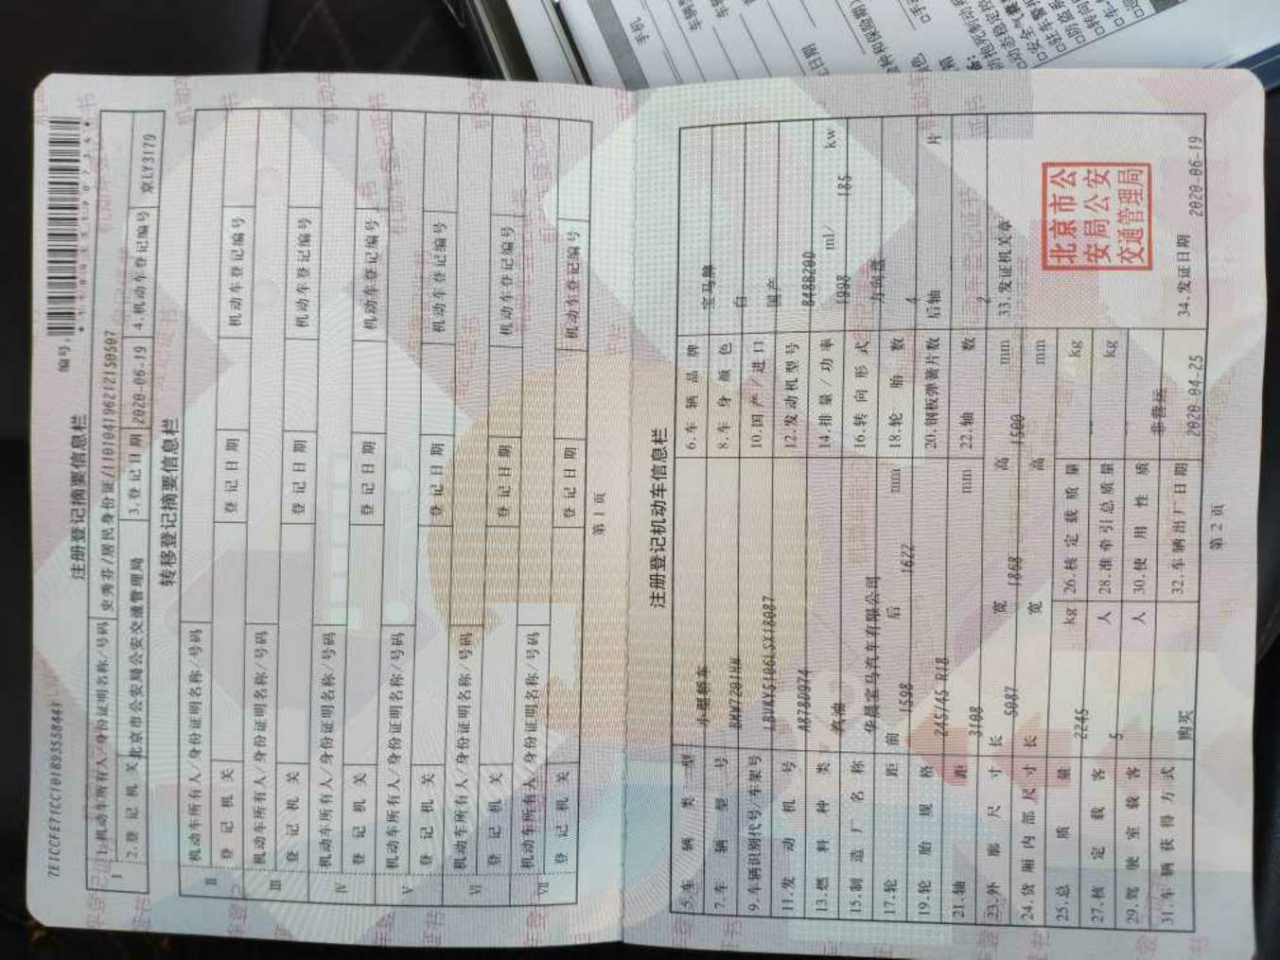 注册登记摘要信息栏
编号:
1.机动车所有人/身份证明名称/号码 史秀芬/居民身份证/110104196212150507
2.登记机关 北京市公安局公安交通管理局 3.登记日期 2020-06-19 4.机动车登记编号 京LY3179
转移登记摘要信息栏
II 机动车所有人/身份证明名称/号码
登记机关 登记日期 机动车登记编号
III 机动车所有人/身份证明名称/号码
登记机关 登记日期 机动车登记编号
IV 机动车所有人/身份证明名称/号码
登记机关 登记日期 机动车登记编号
V 机动车所有人/身份证明名称/号码
登记机关 登记日期 机动车登记编号
VI 机动车所有人/身份证明名称/号码
登记机关 登记日期 机动车登记编号
VII 机动车所有人/身份证明名称/号码
登记机关 登记日期 机动车登记编号
第1页
注册登记机动车信息栏
5.车辆类型 小型轿车 6.车辆品牌 宝马牌
7.车辆型号 8.车身颜色 白
9.车辆识别代号/车架号 10.国产/进口 国产
11.发动机号 A878D974 12.发动机型号 B48B20D
13.燃料种类 汽油 14.排量/功率 1998 ml/ 185 kw
15.制造厂名称 华晨宝马汽车有限公司 16.转向形式 方向盘
17.轮距 前 1598 后 1622 mm 18.轮胎数 4
19.轮胎规格 245/45 R18 20.钢板弹簧片数 后轴 片
21.轴距 3108 mm 22.轴数 2
23.外廓尺寸 长 5087 宽 1868 高 1500 mm 33.发证机关章
24.货厢内部尺寸 长 宽 高 mm
25.总质量 2245 kg 26.核定载质量 kg
27.核定载客 5 人 28.准牵引总质量 kg
29.驾驶室载客 人 30.使用性质 非营运
31.车辆获得方式 购买 32.车辆出厂日期 2020-04-25 34.发证日期 2020-06-19
北京市公
安局公安
交通管理局
第2页